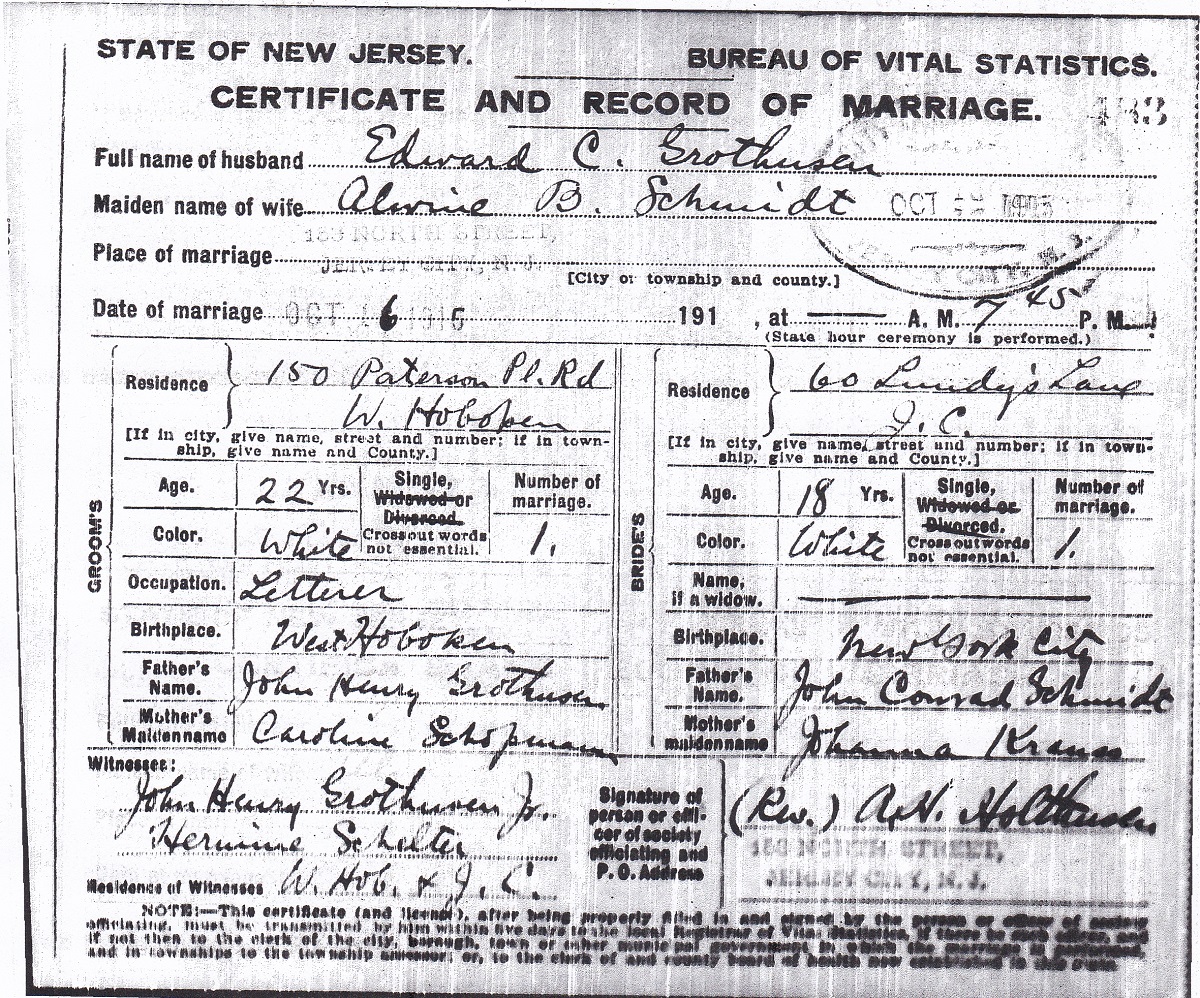 STATE OF NEW JERSEY. BUREAU OF VITAL STATISTICS.
CERTIFICATE AND RECORD OF MARRIAGE.
Full name of husband Edward C. Grothusen
Maiden name of wife Alwine B. Schmidt OCT
159 NORTH STREET,
Place of marriage JERSEY CITY, N. J.
[City or township and county.]
Date of marriage OCT 6 191 , at — A. M. 7 45 P. M.
(State hour ceremony is performed.)
GROOM'S
Residence 150 Paterson Pl. Rd
W. Hoboken
[If in city, give name, street and number; if in town-
ship, give name and County.]
Age. 22 Yrs. Single, Widowed or Divorced. Cross out words not essential. Number of marriage. 1.
Color. White
Occupation. Letterer
Birthplace. West Hoboken
Father's Name. John Henry Grothusen
Mother's Maiden name Caroline Schopmann
BRIDE'S
Residence 60 Lundy's Lane
J. C.
[If in city, give name, street and number; if in town-
ship, give name and County.]
Age. 18 Yrs. Single, Widowed or Divorced. Cross out words not essential. Number of marriage. 1.
Color. White
Name, if a widow. —
Birthplace. New York City
Father's Name. John Conrad Schmidt
Mother's maiden name Johanna Krauss
Witnesses:
John Henry Grothusen Jr.
Hermine Schelter
Residence of Witnesses W. Hob. & J. C.
Signature of person or officer of society officiating and P. O. Address
(Rev.) A. H. Holthusen
159 NORTH STREET,
JERSEY CITY, N. J.
NOTE:—This certificate (and license), after being properly filled in and signed by the person or officer of society
officiating, must be transmitted by him within five days to the local Registrar of Vital Statistics, if there be such officer, and
if not then to the clerk of the city, borough, town or other municipal government in which the marriage is performed,
and in townships to the township assessor; or, to the clerk of and county board of health now established in this state.